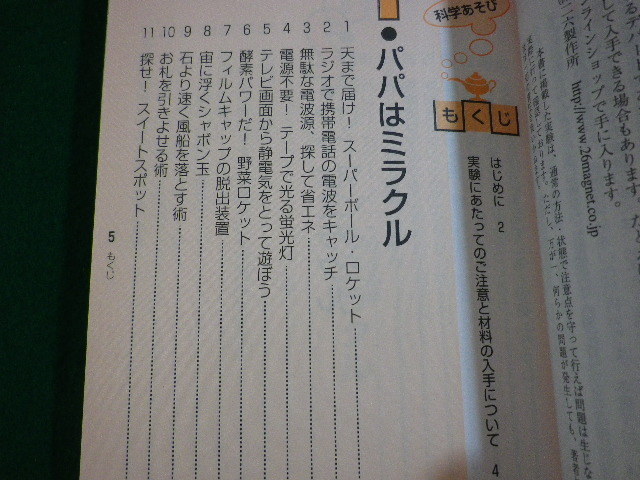 るカバ
して入手できる場合もあります。
ンラインショップで手に入ります。
二六製作所　http://www.26magnet.co.jp
本書に掲載した実験は、通常の方法、状態で注意点を守って行えば問題は生じな
科学あそび
もくじ
はじめに　2
実験にあたってのご注意と材料の入手について　4
●パパはミラクル
1　天まで届け！　スーパーボール・ロケット
2　ラジオで携帯電話の電波をキャッチ
3　無駄な電波源、探して省エネ
4　電源不要！　テープで光る蛍光灯
5　テレビ画面から静電気をとって遊ぼう
6　酵素パワーだ！　野菜ロケット
7　フィルムキャップの脱出装置
8　宙に浮くシャボン玉
9　石より速く風船を落とす術
10　お札を引きよせる術
11　探せ！　スイートスポット
5　もくじ